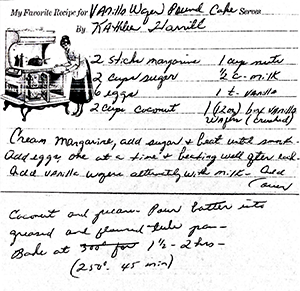 My Favorite Recipe for Vanilla Wafer Pound Cake Serves
By Kathleen Harrill
2 sticks margarine 1 cup nuts
2 cups sugar ½ c. milk
6 eggs 1 t. vanilla
2 cups coconut 1 (12oz) box vanilla
wafers (crushed)
Cream margarine, add sugar & beat until smooth.
Add eggs, one at a time & beating well after each.
Add vanilla wafers alternately with milk - Add
over
Coconut and pecans. Pour batter into
greased and floured tube pan -
Bake at 300° for 1½ - 2 hrs -
(250° 45 min)